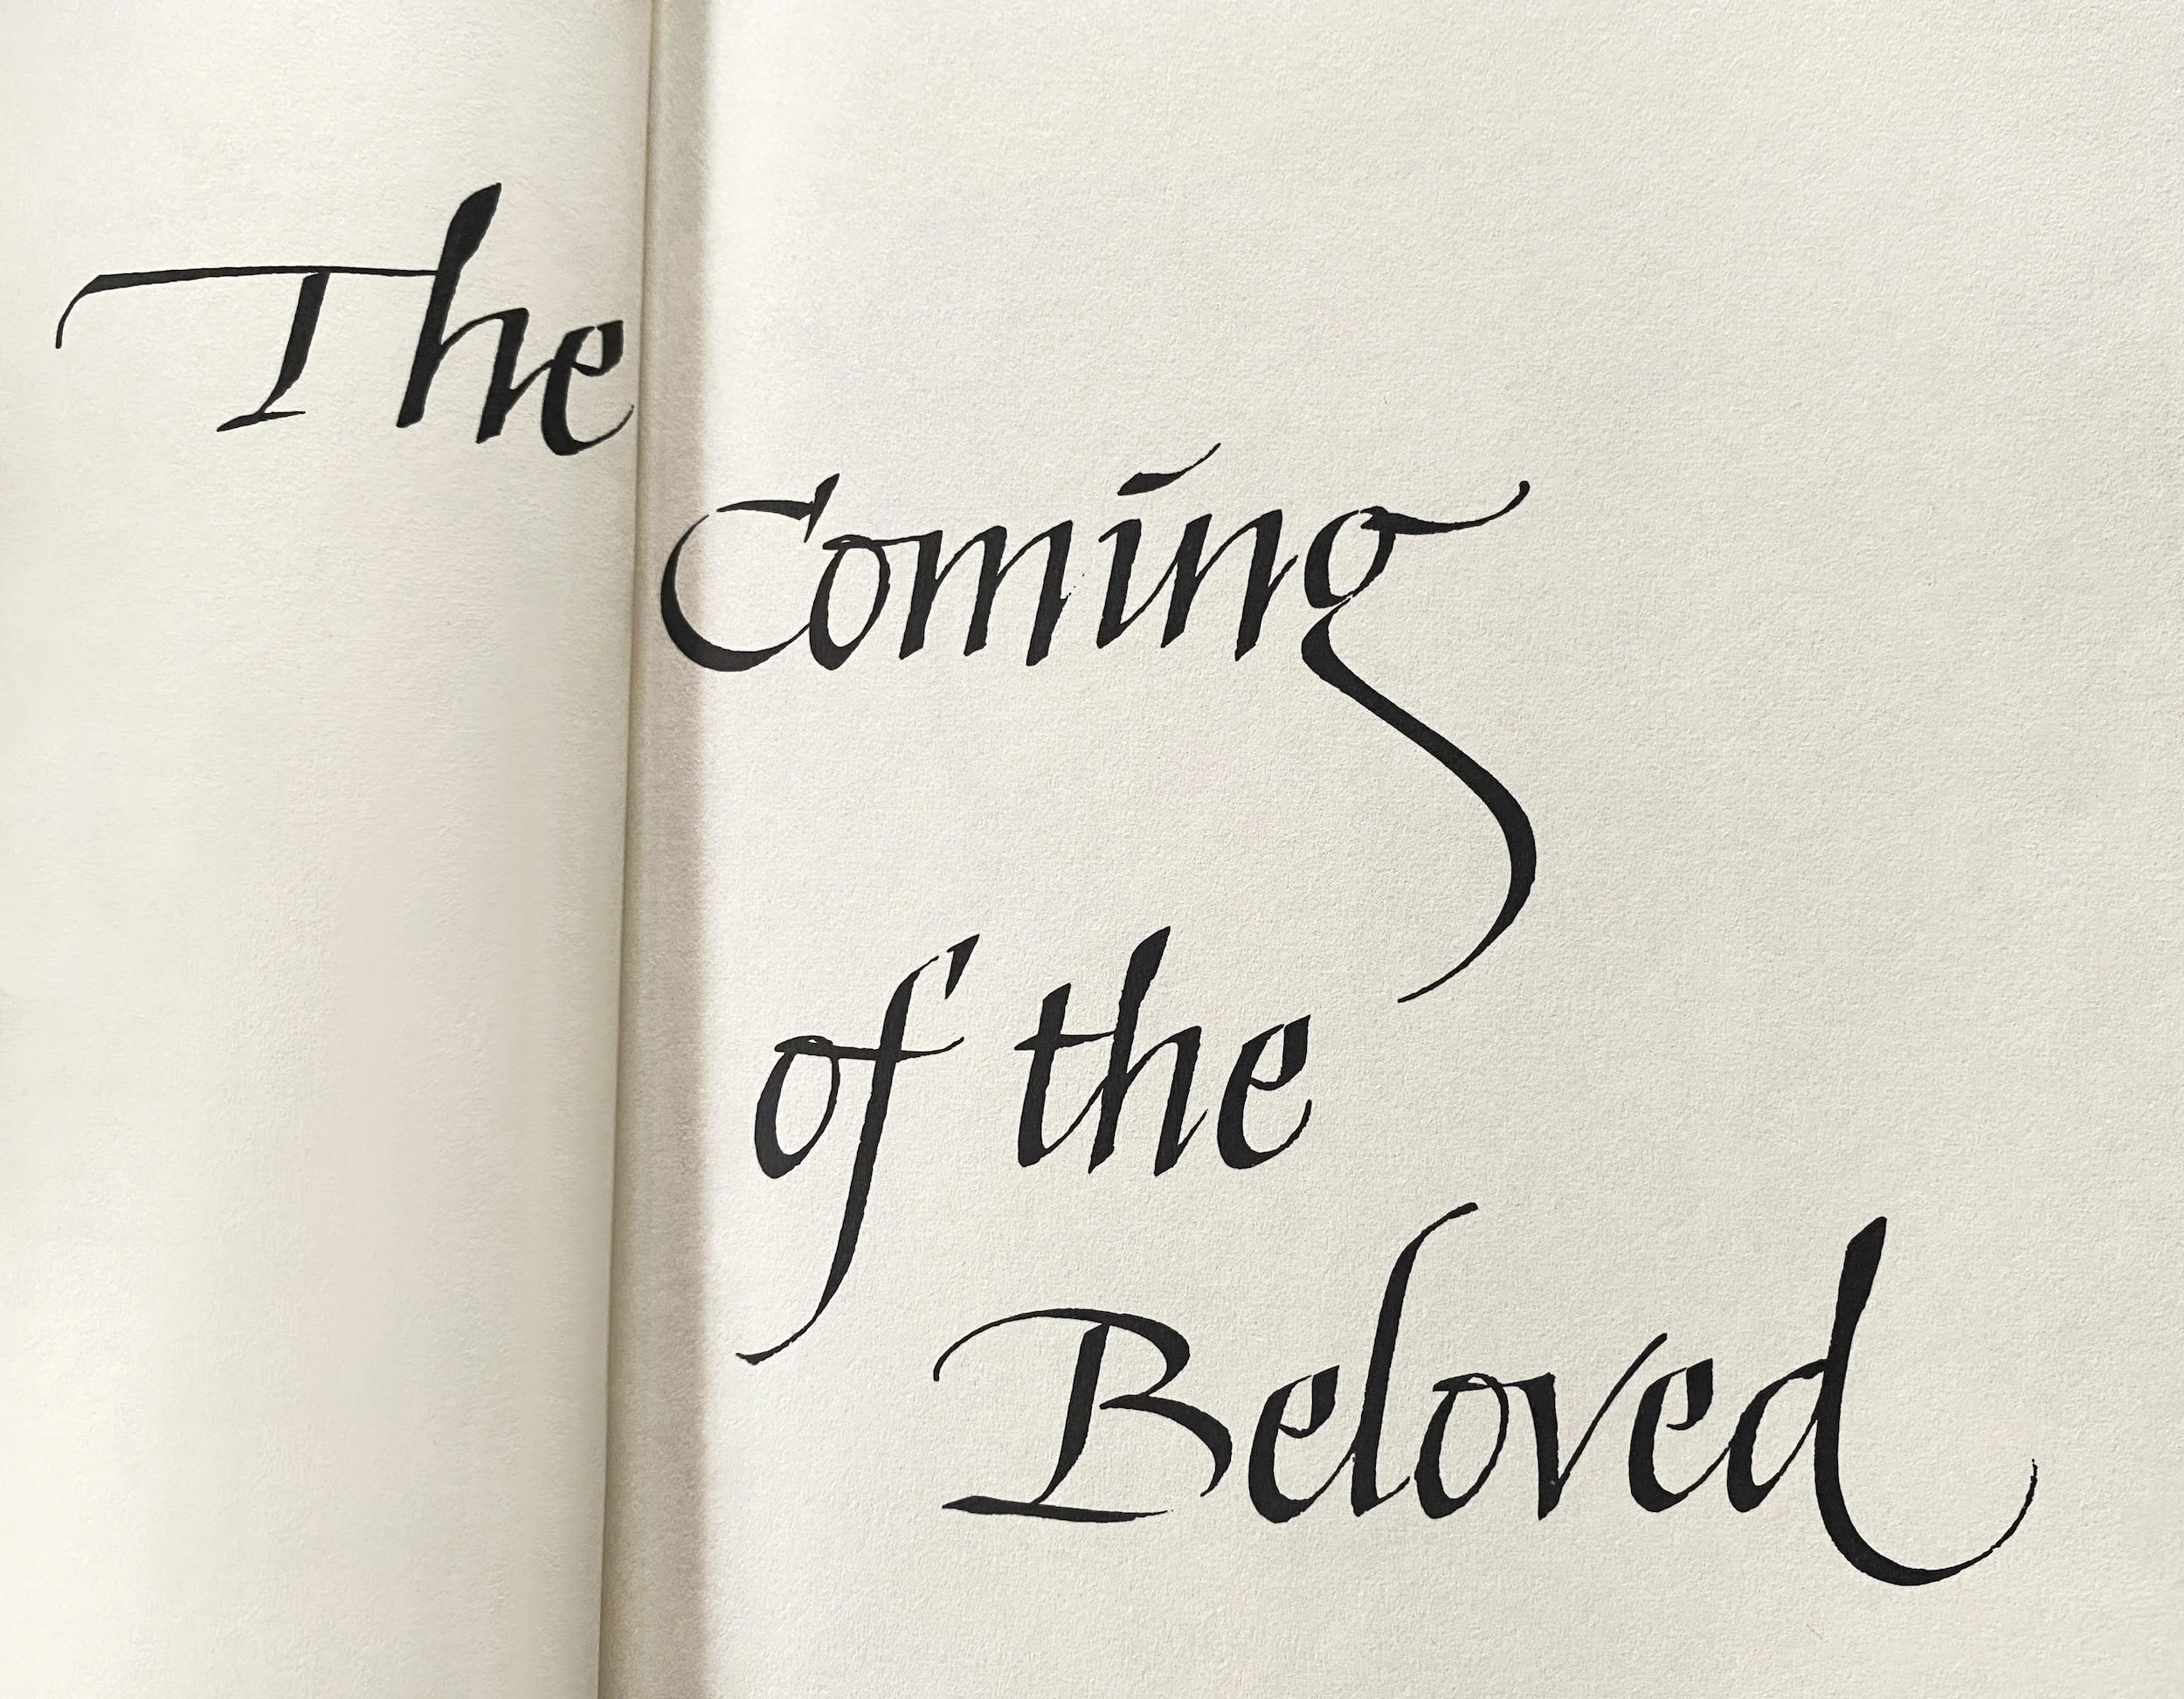 The
Coming
of the
Beloved